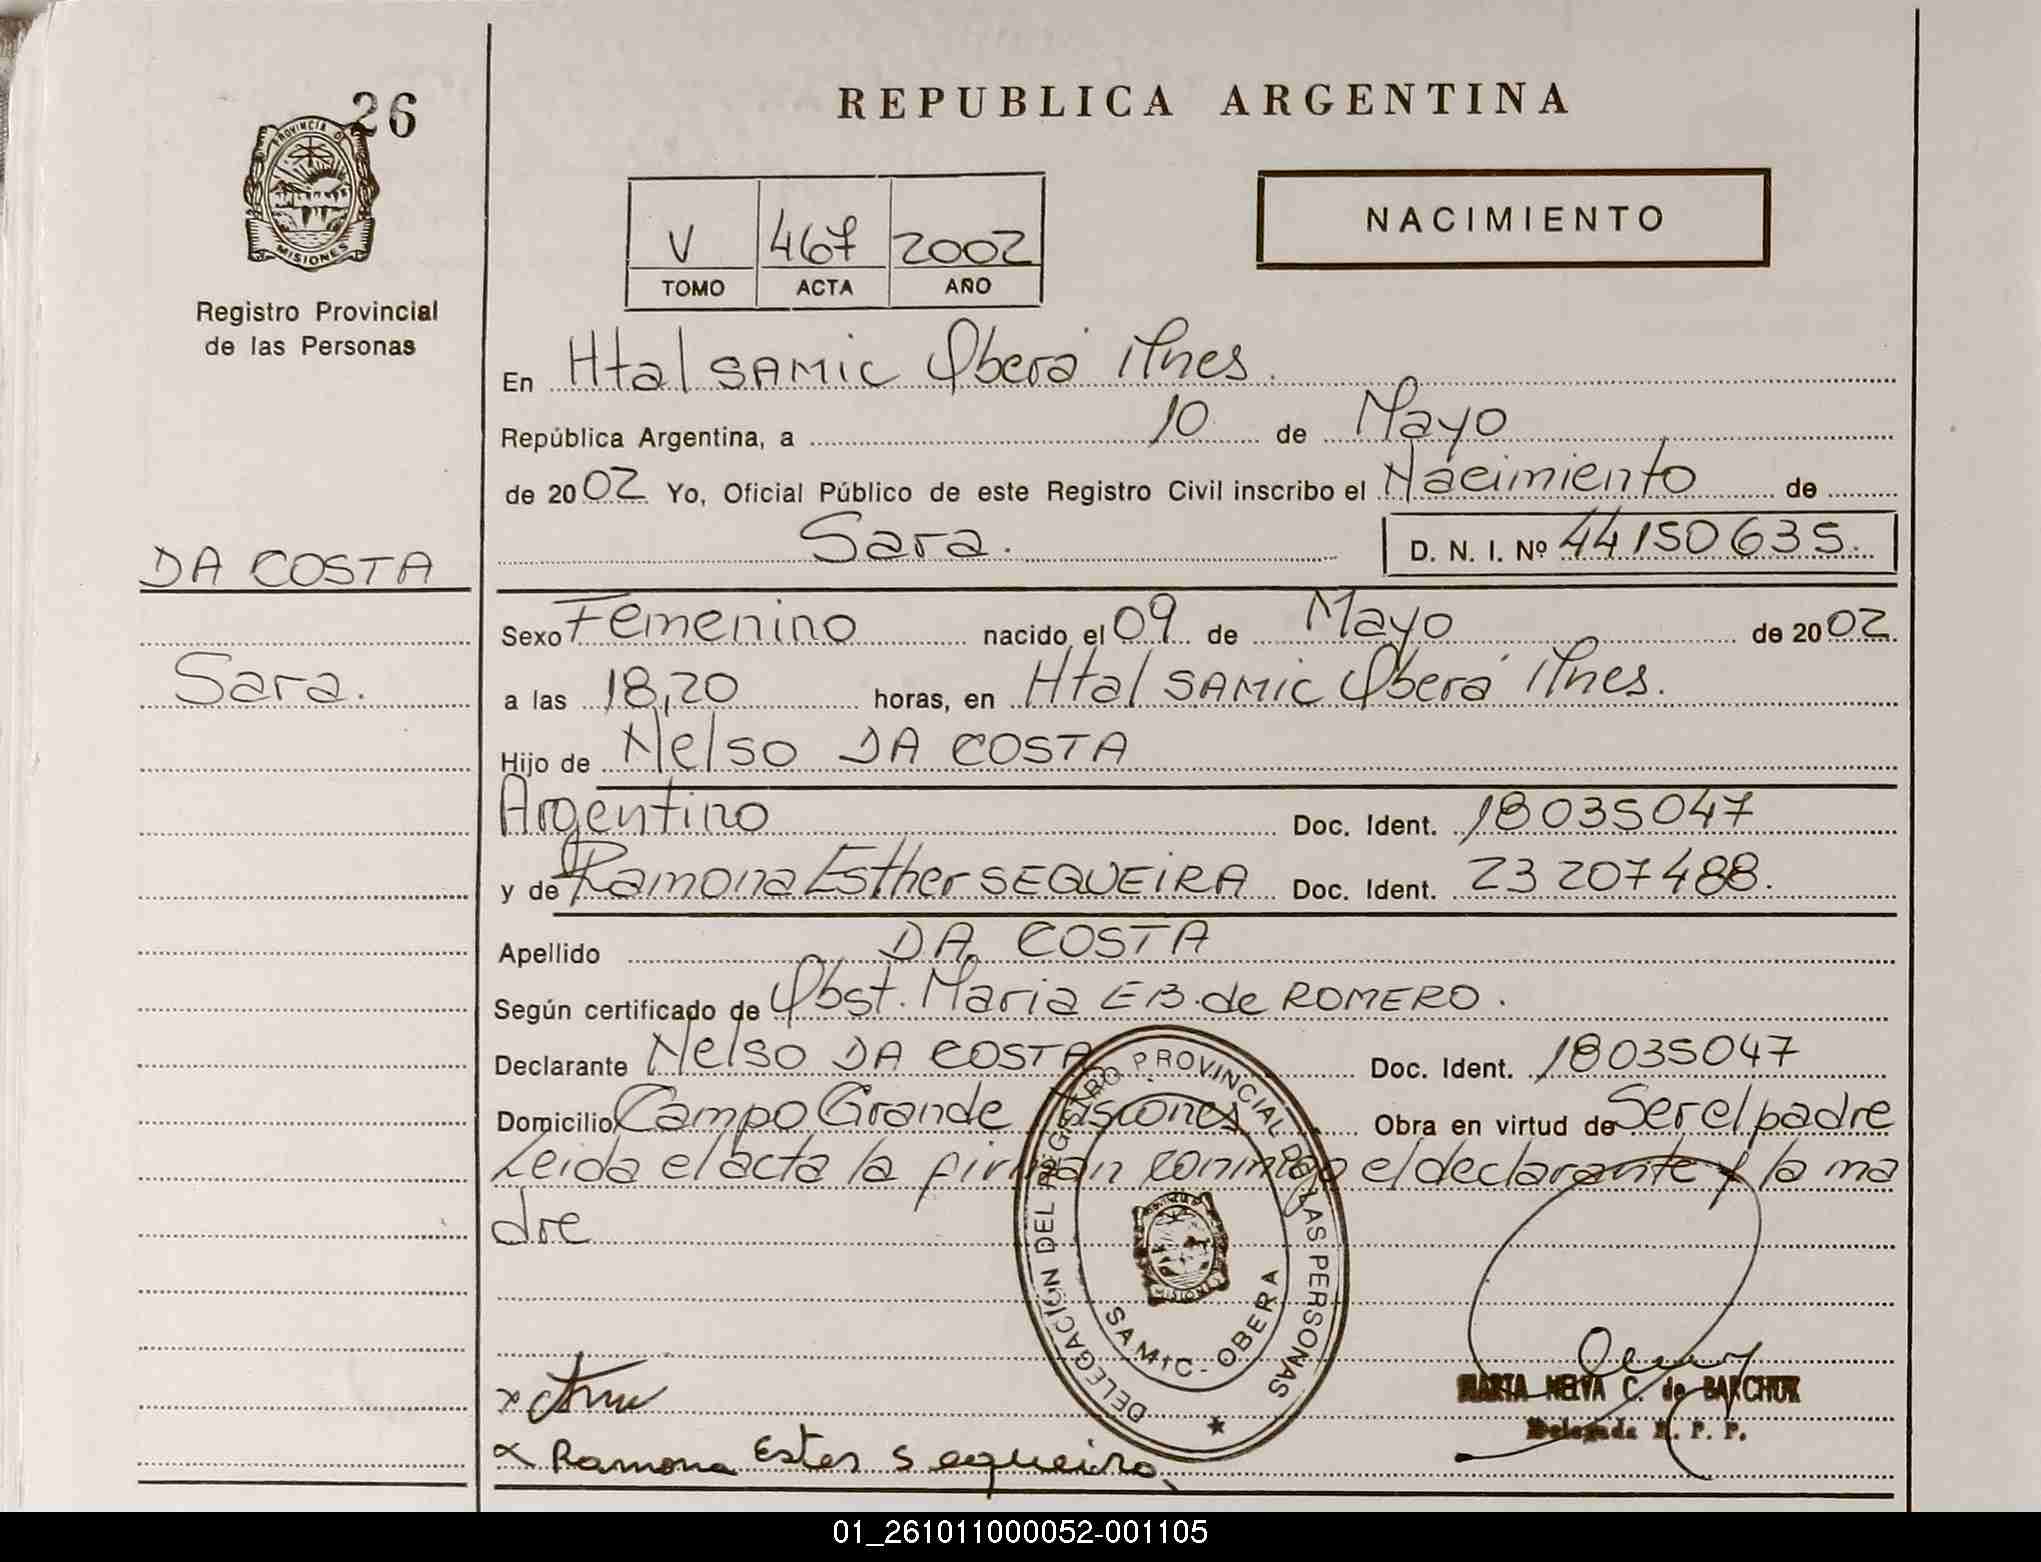 26
PROVINCIA DE
MISIONES
Registro Provincial
de las Personas
DA COSTA
Sara.
REPUBLICA ARGENTINA
V 467 2002
TOMO ACTA AÑO
NACIMIENTO
En Htal SAMIC Oberá Mnes.
República Argentina, a 10 de Mayo
de 2002 Yo, Oficial Público de este Registro Civil inscribo el Nacimiento de
Sara. D. N. I. Nº 44150635.
Sexo Femenino nacido el 09 de Mayo de 2002.
a las 18,20 horas, en Htal SAMIC Oberá Mnes.
Hijo de Nelso DA COSTA
Argentino Doc. Ident. 18035047
y de Ramona Esther SEQUEIRA Doc. Ident. 23207488.
Apellido DA COSTA
Según certificado de Obst. Maria E B. de ROMERO.
Declarante Nelso DA COSTA Doc. Ident. 18035047
Domicilio Campo Grande Misiones Obra en virtud de Ser el padre
Leida el acta la firman conmigo el declarante y la ma
dre
DELEGACIÓN DEL REGISTRO PROVINCIAL DE LAS PERSONAS
MISIONES
SAMIC - OBERA
MARTA NELVA C. de BARCHUK
Delegada R. P. P.
x Ramona Ester Sequeira
01_261011000052-001105